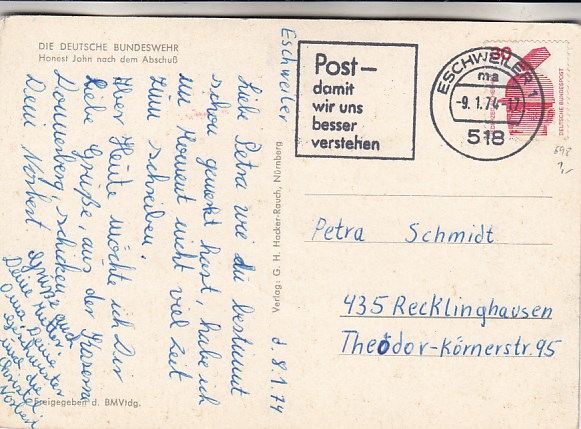 DIE DEUTSCHE BUNDESWEHR
Honest John nach dem Abschuß
Eschweiler d 8.1.74
Liebe Petra wie du bestimmt
schon gemerkt hast, habe ich
im Moment nicht viel Zeit
zum schreiben.
Aber Heute möchte ich Dir
liebe Grüße, aus der Kaserne
Donnerberg, schicken
Dein Norbert.
Grüße auch
Deine Mutter,
Oma,
Deine
und die
Norbert
Freigegeben d. BMVtdg.
Verlag: G. H. Hacker-Rauch, Nürnberg
Post–
damit
wir uns
besser
verstehen
ESCHWEILER 1
ma
-9.1.74-17
518
30
DEUTSCHE BUNDESPOST
698
1,-
Petra Schmidt
435 Recklinghausen
Theodor-Körnerstr. 95